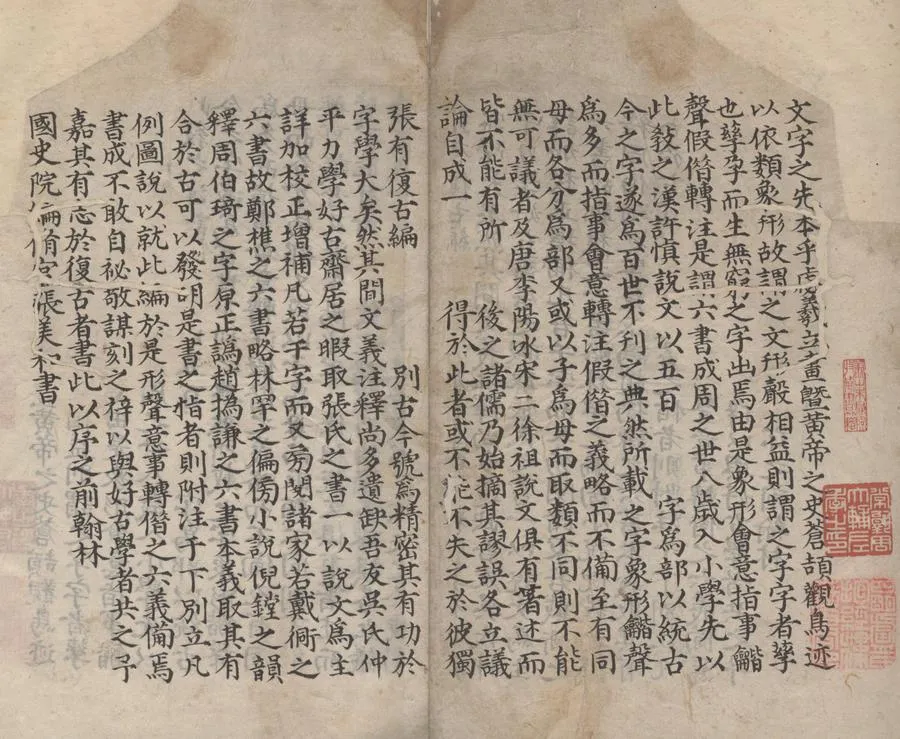 文字之先本乎虙羲立畫曁黃帝之史蒼頡觀鳥迹
以依類象形故謂之文形聲相益則謂之字字者孳
也孳孕而生無窮之字出焉由是象形會意指事龤
聲假借轉注是謂六書成周之世八歲入小學先以
此敎之漢許慎說文以五百 字為部以統古
今之字遂為百世不刋之典然所載之字象形龤聲
為多而指事會意轉注假借之義略而不備至有同
母而各分為部又或以子為母而取類不同則不能
無可議者及唐李陽冰宋二徐祖說文俱有著述而
皆不能有所 後之諸儒乃始摘其謬誤各立議
論自成一 得於此者或不能不失之於彼獨
張有復古編 別古今號為精密其有功於
字學大矣然其間文義注釋尚多遺缺吾友吳氏仲
平力學好古齋居之暇取張氏之書一以說文為主
詳加校正增補凡若干字而又旁閱諸家若戴侗之
六書故鄭樵之六書略林罕之偏傍小說倪鏜之韻
釋周伯琦之字原正譌趙撝謙之六書本義取其有
合於古可以發明是書之恉者則附注于下別立凡
例圖說以就此編於是形聲意事轉借之六義備焉
書成不敢自祕敬謀刻之梓以與好古學者共之予
嘉其有志於復古者書此以序之前翰林
國史院編脩官張美和書